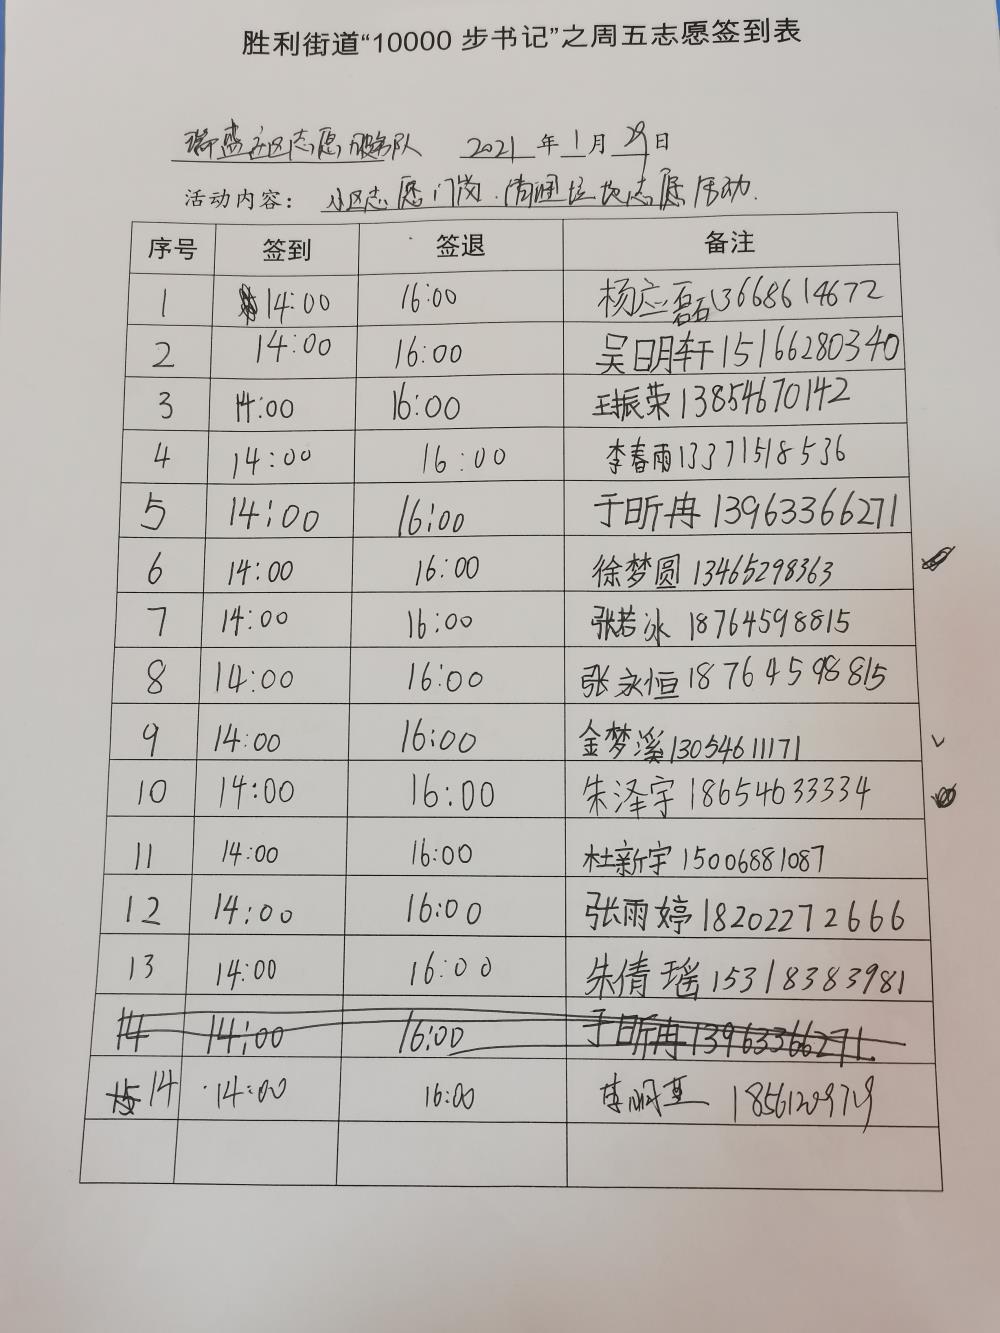 胜利街道“10000 步书记”之周五志愿签到表
瑞盛社区志愿服务队 2021 年 1 月 29 日
活动内容： 小区志愿门岗.清理垃圾志愿活动.
序号 签到 签退 备注
1 14:00 16:00 杨应磊13668614672
2 14:00 16:00 吴明轩15166280340
3 14:00 16:00 王振荣13854670142
4 14:00 16:00 李春雨13371518536
5 14:00 16:00 于昕冉 13963366271
6 14:00 16:00 徐梦圆 13465298363
7 14:00 16:00 张若冰 18764598815
8 14:00 16:00 张永恒18764598815
9 14:00 16:00 金梦溪13054611171
10 14:00 16:00 朱泽宇 18654633334
11 14:00 16:00 杜新宇 15006881087
12 14:00 16:00 张雨婷 18202272666
13 14:00 16:00 朱倩瑶 15318383981
14 14:00 16:00 于昕冉13963366271
15 14 14:00 16:00 18561209729